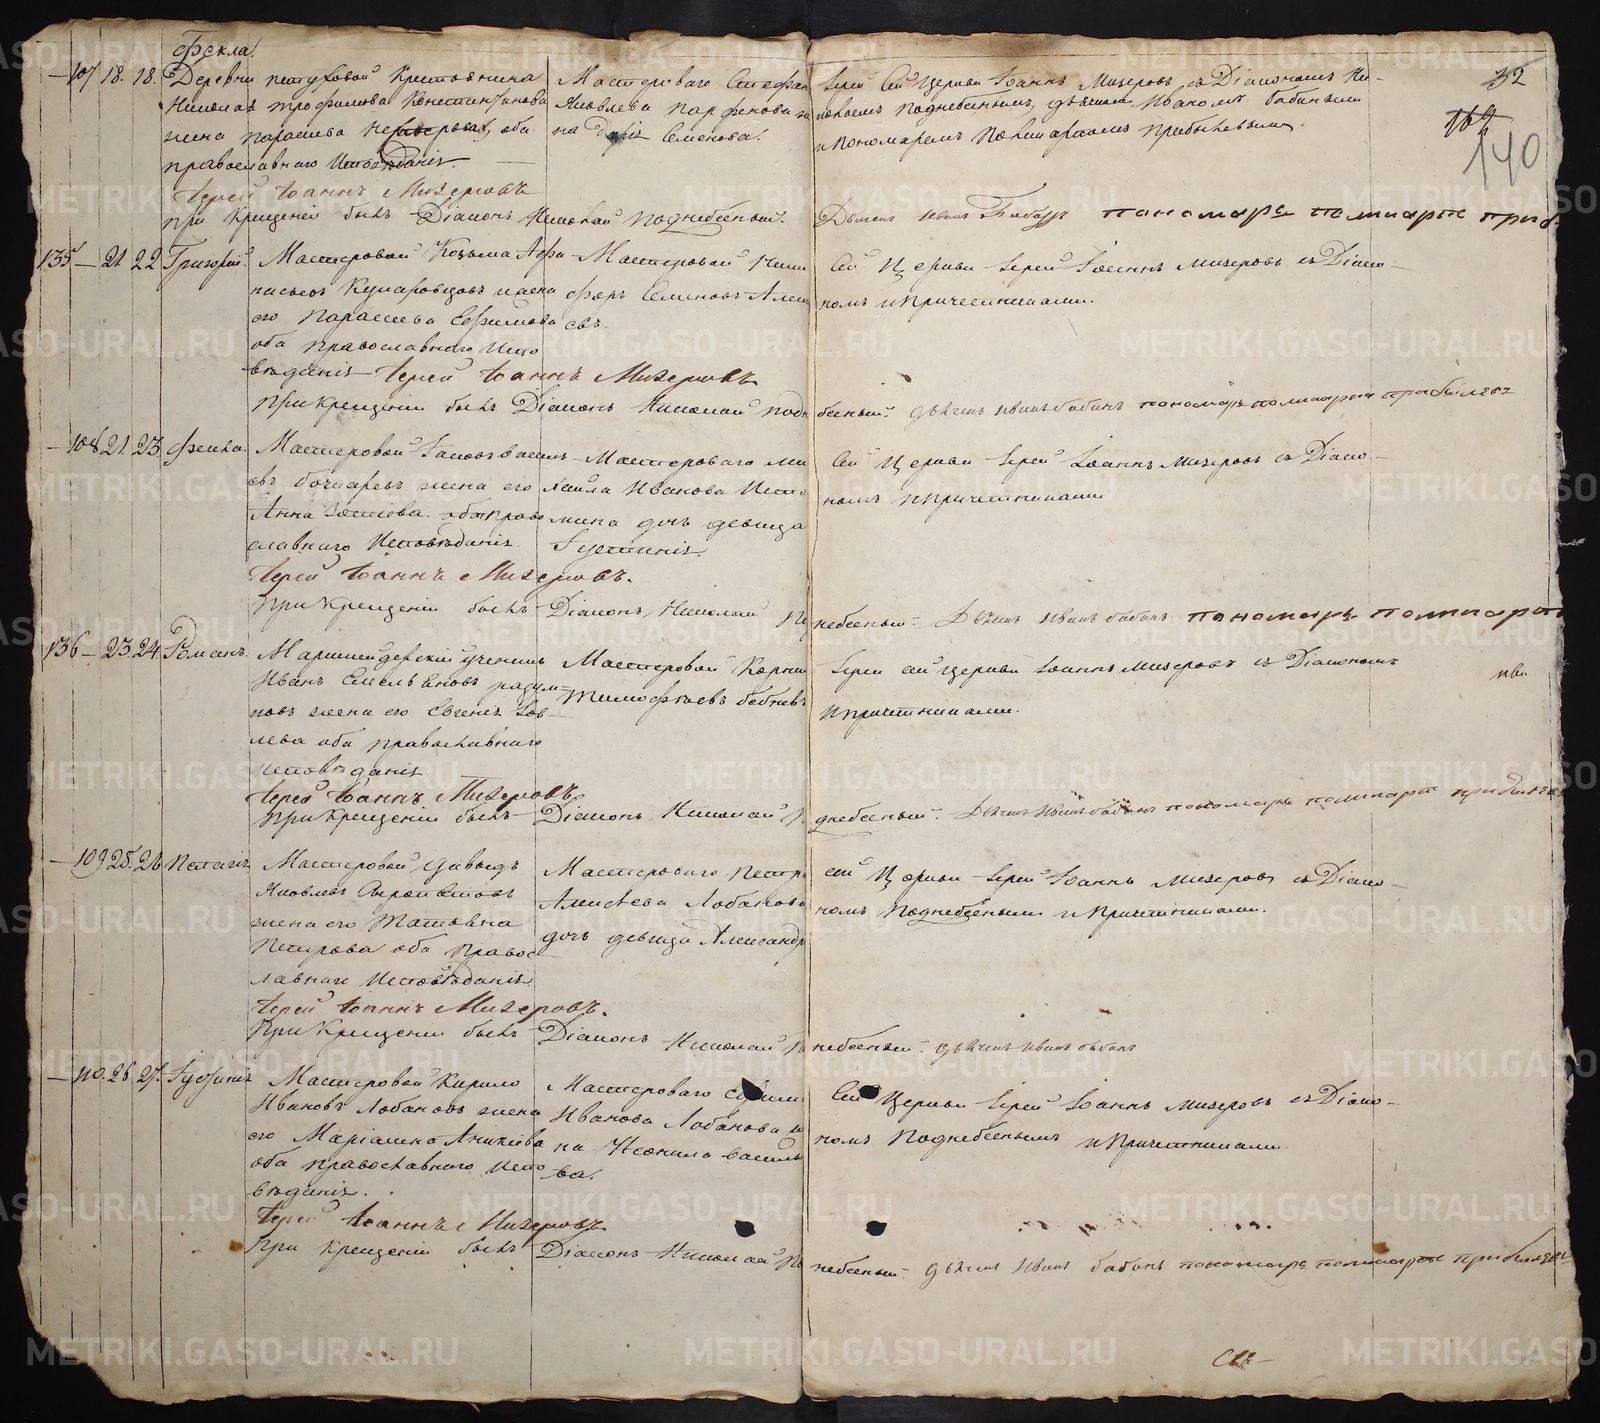 Фекла.
107 18. 18. Деревни петуховой Крестьянина
Николая трофимова Константинова
жена парасковья оба
православнаго Исповѣданія.
Мастероваго Стефана
Яковлева парфенова же
на Дарья Семенова.
Іерей Сей Церкви Іоаннъ Мизеровъ съ Діакономъ Ни-
колаемъ Поднебеснымъ, дьячкомъ Иваномъ бабинымъ
и пономаремъ Поликарпомъ Прибылевымъ.
32
140
Іерей Іоаннъ Мизеровъ
при крещеніи былъ Діаконъ Николай Поднебесный. Дьячекъ Иванъ Бабинъ пономарь поликарпъ приб.
135 – 21 22 Григорій.
Мастеровой Козьма Афа
насьевъ жена
его Парасковья Ефимова
оба православнаго Испо
вѣданія
Мастеровой Ники
форъ Семеновъ Алек
евъ.
Сей Церкви Іерей Іоаннъ Мизеровъ съ Діако-
номъ и Причетниками.
Іерей Іоаннъ Мизеровъ
При крещеніи былъ Діаконъ Николай подне бесный. дьячекъ иванъ бабинъ пономарь поликарпъ прибылевъ
– 108 21. 23. Фекла.
Мастеровой Іаковъ васильъ
евъ бочкаревъ жена его
Анна оба право
славнаго Исповѣданія.
Мастероваго Ми
хаила Иванова Исто
мина дочь девица
Іустинія.
Сей Церкви Іерей Іоаннъ Мизеровъ съ Діако-
номъ и Причетниками
Іерей Іоаннъ Мизеровъ.
При Крещеніи былъ Діаконъ Николай Под небесный. Дьячекъ Иванъ бабинъ пономарь поликарпъ
136 – 23. 24. Романъ.
Маркшейдерскій ученикъ
Иванъ Емельяновъ
жена его Евгенія
оба православнаго
исповѣданія.
Мастеровой Корни
Тимофѣевъ
Іерей сей церкви Іоаннъ Мизеровъ съ Діакономъ
и причетниками.
Іерей Іоаннъ Мизеровъ
При Крещеніи былъ Діаконъ Николай По днебесный. Дьячекъ Иванъ бабинъ пономарь поликарпъ прибылевъ
– 109 25. 26 Пелагія
Мастеровой Давыдъ
Яковлевъ
жена его Татьяна
Петрова оба Правос
лавнаго Исповѣданія
Мастероваго Петра
Алексѣева Лобанова
дочь девица Александра
сей Церкви Іерей Іоаннъ Мизеровъ съ Діако-
номъ Поднебеснымъ и Причетниками.
Іерей Іоаннъ Мизеровъ.
При Крещеніи былъ Діаконъ Николай Под небесный. дьячекъ иванъ бабинъ
– 110. 26. 27.
Мастеровой Кирило
Ивановъ Лобановъ жена
его Маріамна Аникіева
оба православнаго Испо
вѣданія.
Мастероваго
Иванова Лобанова же
на Неонила василье
ва.
Сей Церкви Іерей Іоаннъ Мизеровъ съ Діако-
номъ Поднебеснымъ и Причетниками.
Іерей Іоаннъ Мизеровъ
При крещеніи былъ Діаконъ Николай Под небесный. дьячекъ Иванъ бабинъ пономарь поликарпъ прибылевъ
METRIKI.GASO-URAL.RU